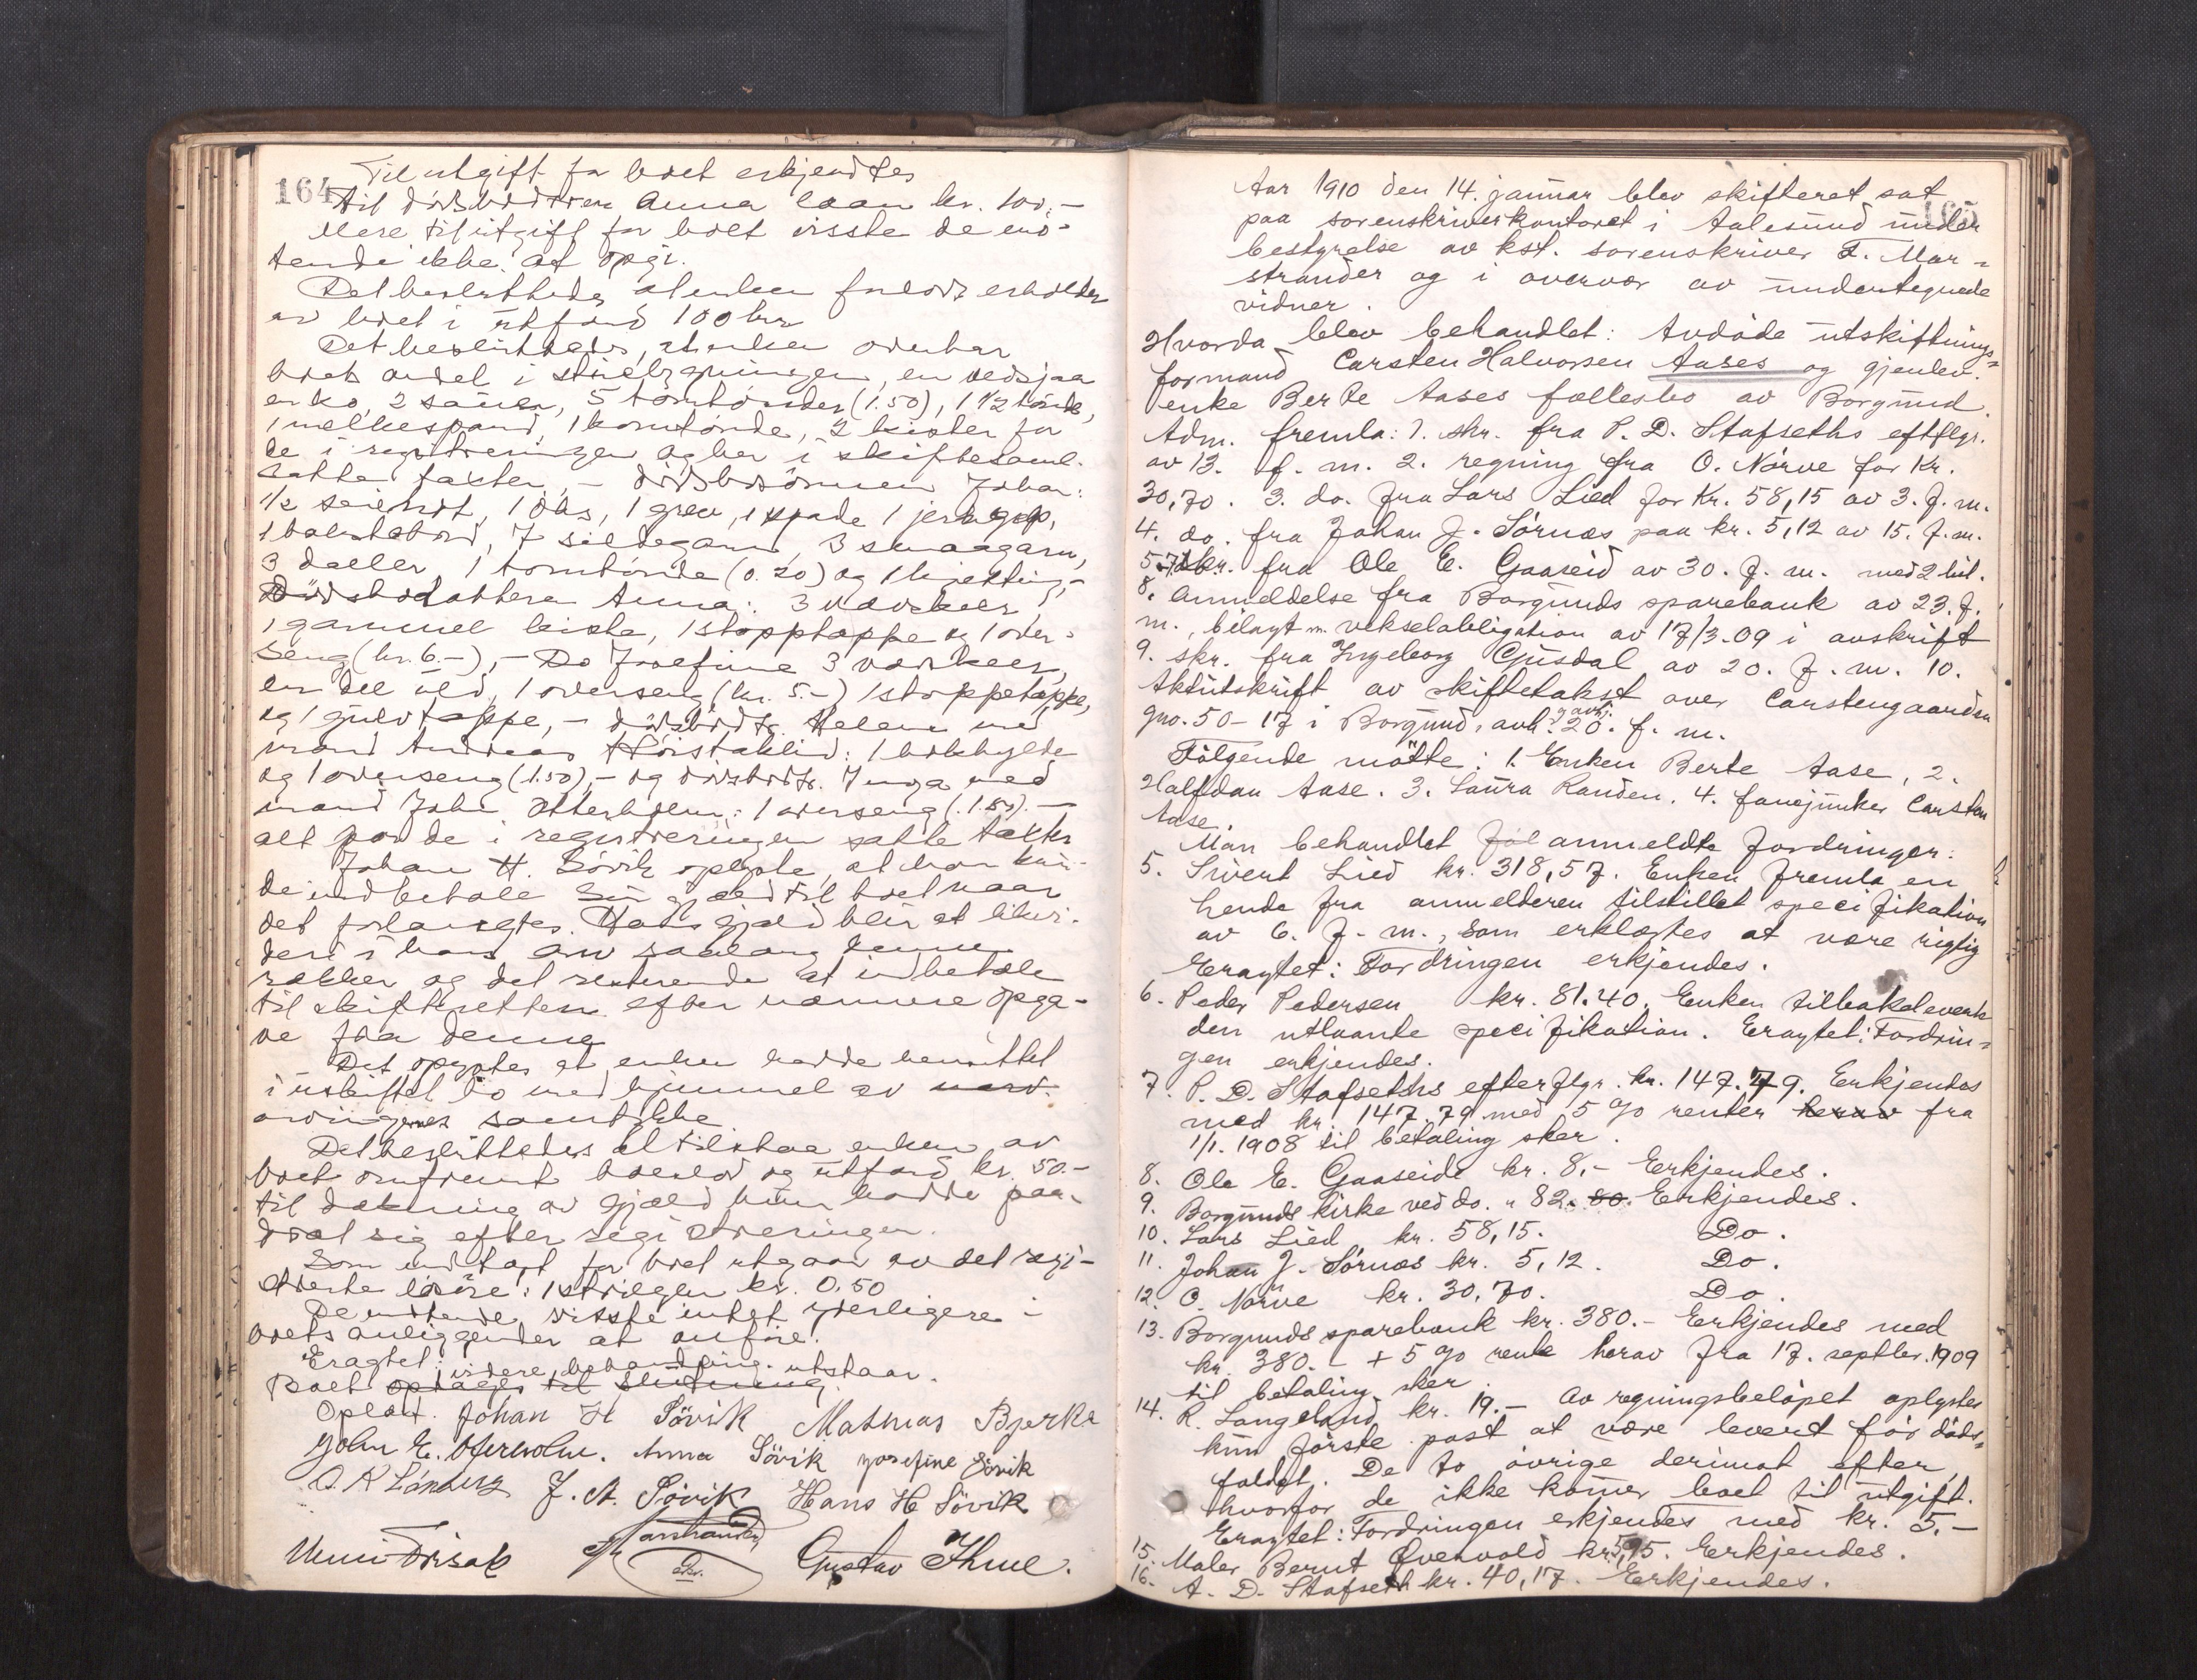 164
Til utgift for boet erkjendtes
til dødsbodatteren Anna laan kr. 100,-
Mere til utgift for boet visste de mø-
tende ikke at opgi.
Det besluttedes at enken forlods erholder
av boet i utfærd 100 kr.
Det besluttedes, at enken overtar
boets andel i
en ko, 2 sauer, 5 torntønder (1.50), 1 1/2 tønde,
1 melkespand, 1 korntønde, 2 kister for
de i registreringen og her i skiftesaml.
satte takster, - dødsbosønnen Johan:
1/2 1 øks, 1 grev, 1 spade 1
7 sildegarn, 3 smaagarn,
3 dæller, 1 korntønde (0.20) og 1
Dødsbodatteren Anna: 3 vævskeer,
1 gammel kiste, 1 stopptæppe og 1 over-
seng (kr. 6.-), - Do Josefine 3 vævskeer,
en del uld, 1 overseng (kr. 5.-) 1 stoppetæppe,
og 1 gulvtæppe, - dødsbodtr. Helene med
mand Andreas Høistaklid: 1 bokhylde
og 1 overseng (1.50), - og dødsbodtr. Inga med
mand John Otterholm: 1 overseng (1.50). -
alt for de i registreringen satte takster
Johan H. Søvik oplyste, at han kun-
de indbetale sin gjæld til boet naar
det forlangtes. Hans gjæld blir at likvi-
dere i hans arv saalangt denne
rækker og det resterende at indbetale
til skifteretten efter nærmere opga-
ve fra denne
Det oplystes at enken hadde hensittet
i uskiftet bo med hjemmel av
arvingernes samtykke
Det besluttedes at tilstaa enken av
boet omfremt boeslod og utfærd kr. 50.-
til dækning av gjæld hun hadde paa-
drat sig efter registreringen.
Som indtægt for boet utgaar av det regi-
strerte løsøre: 1 kr. 0.50
De møtende visste intet yderligere i
boets anliggender at anføre.
Eragtet:
Boets videre behandling utstaar.
optages til slutning
Oplæst. Johan H Søvik Mathias Bjerke
John E. Oterholm. Anna Søvik Josefine Søvik
J. A. Søvik Hans H Søvik
Marstrander
Gustav Thue.
165
Aar 1910 den 14. januar blev skifteret sat
paa sorenskriverkontoret i Aalesund under
bestyrelse av kst. sorenskriver F. Mar-
strander og i overvær av undertegnede
vidner.
Hvorda blev behandlet: Avdøde utskiftnings-
formand Carsten Halvorsen Aases og gjenlev.
enke Berte Aases fællesbo av Borgund.
Adm. fremla: 1. skr. fra P. D. Stafseths eftflgr.
av 13. f. m. 2. regning fra O. Nørve for Kr.
30,70. 3. do. fra Lars Lied for Kr. 58,15 av 3. f. m.
4. do. fra Johan J. Sørnæs paa kr. 5,12 av 15. f. m.
5-7 skr. fra Ole E. Gaaseid av 30. f. m. med 2 bil.
8. Anmeldelse fra Borgunds sparebank av 23. f.
m., bilagt m. vekselobligation av 17/3-09 i avskrift
9. skr. fra Ingeborg Gusdal av 20. f. m. 10.
Aktutskrift av skiftetakst over Carstengaarden
gno. 50-17 i Borgund, avh. 20. f. m.
Følgende møtte: 1. Enken Berte Aase, 2.
Halfdan Aase. 3. Laura Randen. 4. fanejunker Carsten
Aase.
Man behandlet føl anmeldte fordringer:
5. Sivert Lied kr. 318,57. Enken fremla en
hende fra anmelderen tilstillet specifikation
av 6. f. m., som erklærtes at være rigtig
Eragtet: Fordringen erkjendes.
6. Peder Pedersen kr. 81.40. Enken tilbakeleverte
den utlaante specifikation. Eragtet: Fordrin-
gen erkjendes.
7. P. D. Stafseths efterflgr. kr. 147.79. Erkjendes
med kr. 147.79 med 5 % renter herav fra
1/1. 1908 til betaling sker.
8. Ole E. Gaaseide kr. 8.- Erkjendes.
9. Borgunds kirke ved do. " 82. 80. Erkjendes.
10. Lars Lied kr. 58,15. Do.
11. Johan J. Sørnæs kr. 5,12. Do.
12. O. Nørve kr. 30,70. Do.
13. Borgunds sparebank kr. 380.- Erkjendes med
kr. 380.- + 5 % rente herav fra 17. septbr. 1909
til betaling sker.
14. R. Langeland kr. 19.- Av regningsbeløpet oplystes
kun første post at være levert før døds-
faldet. De to øvrige derimot efter,
hvorfor de ikke kommer boet til utgift.
Eragtet: Fordringen erkjendes med kr. 5.-
15. Maler Bernt Øvervold kr. 5,95. Erkjendes.
16. A. D. Stafseth kr. 40,17. Erkjendes.